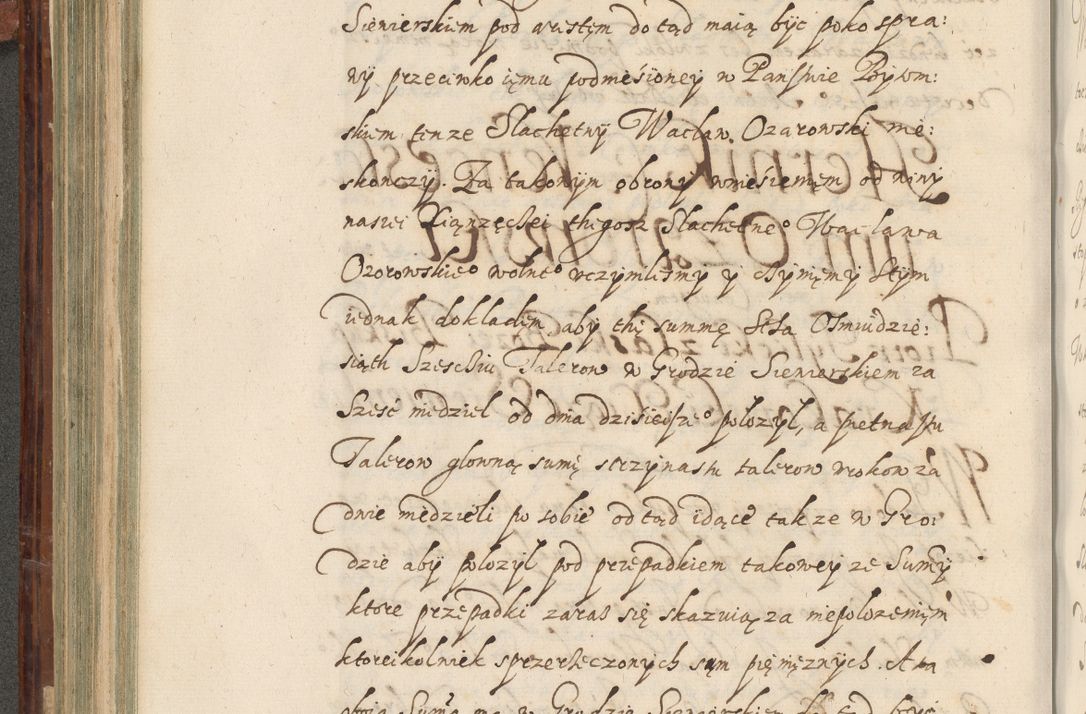 Sienierskiem pod aristęm do tąd maią być poko spra:
wy przeciwko iemu podniesioney w Państwie Bytom:
skiem tenze Slachetny Wacław Ozarowski nie:
skonczy. Za takowym obrony wniesieniem od winy
naszei Xiąnzęczei thegosz Slachetne° Wacława
Ozorowskie° wolne° uczynilismy y czÿnięmy stym
iednak dokladem aby thę summę Sta Osmudzie:
siąth Szesciu Talerow w Grodzie Sienierskiem za
Szesć niedziel od dnia dzisieisze° polozyl, a pietnastu
Talerow glowną sumę strzynastu talerow wrokow za
dwie niedzieli po sobie odtąd idące takze w Gro:
dzie aby polozyl pod przepadkiem takowey ze Summy
ktore przepadki zaras się skazuią za niepolozeniem
ktoreikolwiek zprzerzeczonych sum pięnięznych. A ta
oboia Summa ma w Grodzie Sienierskiem być